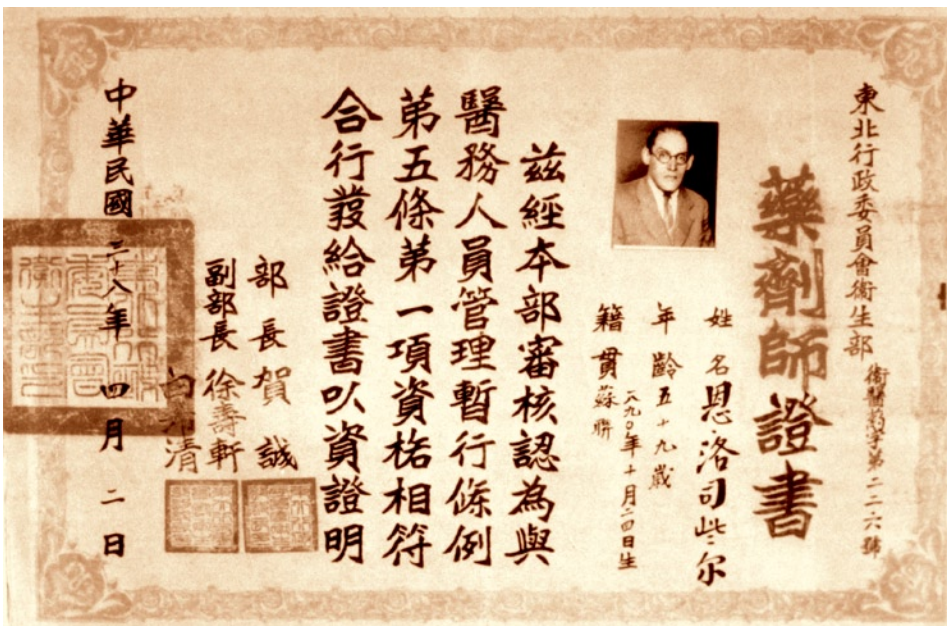 東北行政委員會衛生部
衛醫药字第二二六號
藥劑師證書
姓名恩洛司些尔
年齡五十九歲
一八九〇年十月二四日生
籍貫蘇聯
茲經本部審核認為與
醫務人員管理暫行條例
第五條第一項資格相符
合行發給證書以資證明
部長賀誠
副部長徐壽軒
白清
中華民國三十八年四月二日